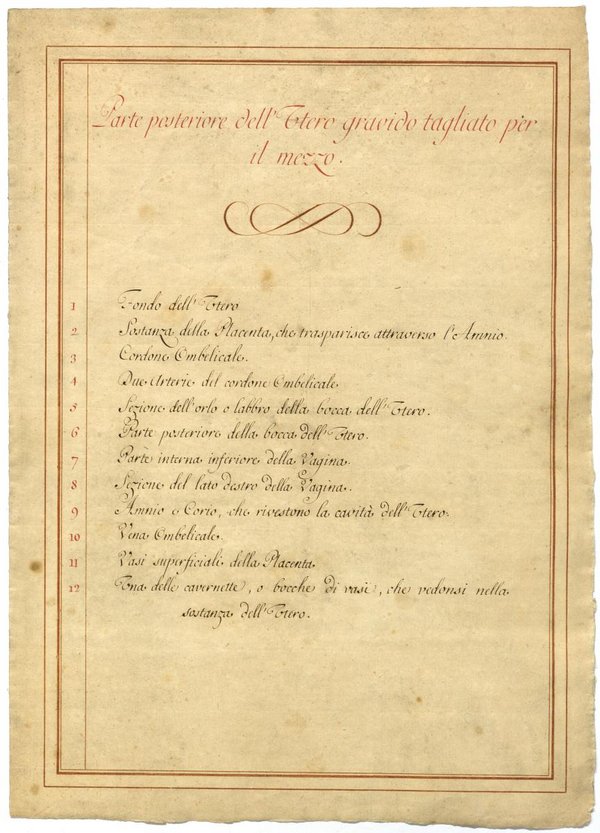 Parte posteriore dell'Utero gravido tagliato per
il mezzo.
1 Fondo dell'Utero
2 Sostanza della Placenta, che trasparisce attraverso l'Amnio.
3 Cordone Umbelicale.
4 Due Arterie del cordone Umbelicale
5 Sezione dell'orlo o labbro della bocca dell'Utero.
6 Parte posteriore della bocca dell'Utero.
7 Parte interna inferiore della Vagina.
8 Sezione del lato destro della Vagina.
9 Amnio e Corio, che rivestono la cavità dell'Utero.
10 Vena Umbelicale.
11 Vasi superficiali della Placenta
12 Una delle cavernette, o bocche di vasi, che vedonsi nella
sostanza dell'Utero.